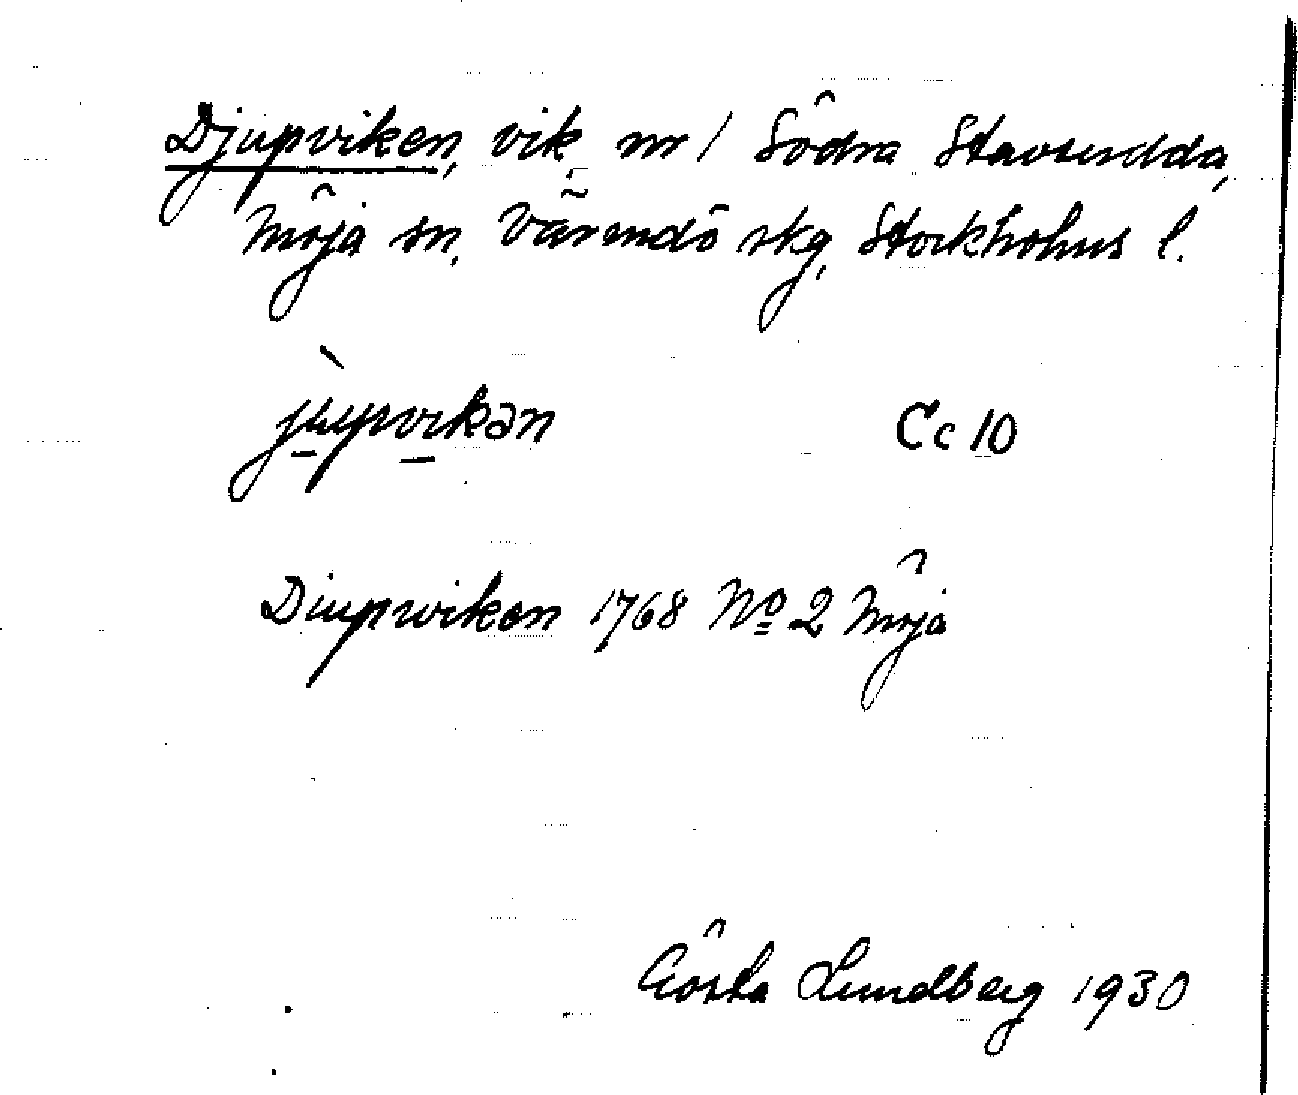 Djupviken, vik nr 1 Södra Stavsudda,
Möja sn, Värmdö skg, Stockholms l.
jùpvikən Cc 10
Diupwiken 1768 No 2 Möja
Gösta Lundberg 1930